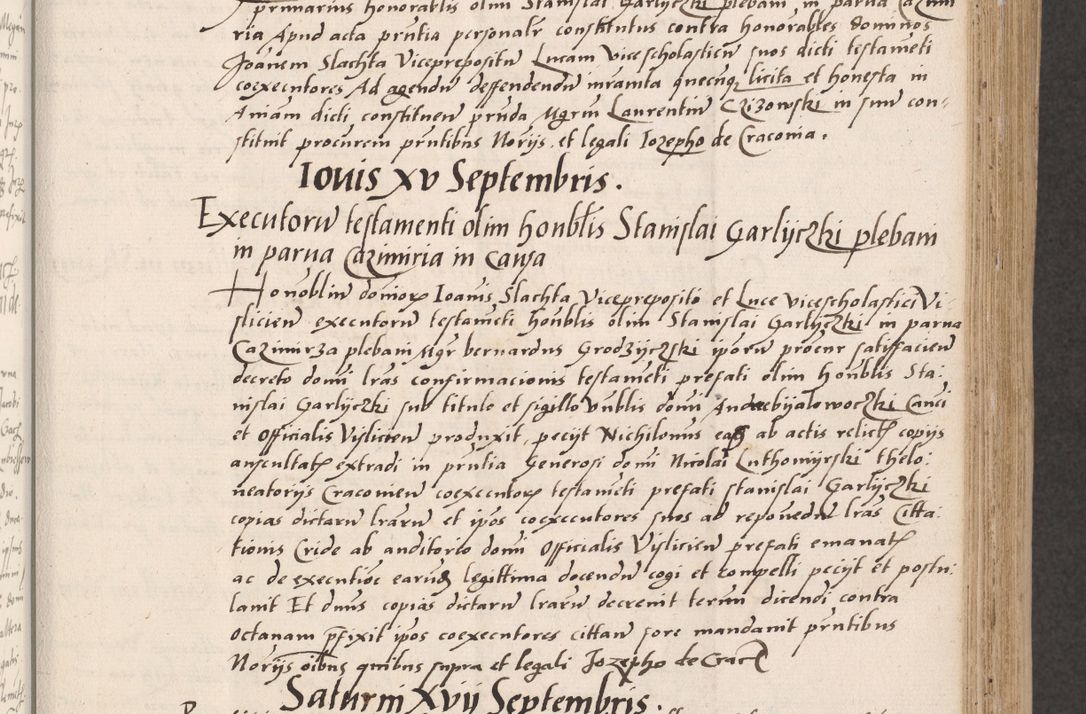 primarius honorablis olim Stanislai Garlyczki plebani in parua Cazimi
ria Apud acta prntia personalr constitutus contra honorabiles dominos
Joanem Slachta Viceprepositu Lucam vicescholasticu suos dicti testameti
coexecutores Ad agendu deffendendu iuramta quecnq licita et honesta in
Aniam dicti constituen prnda Mgrm Laurentiu Czizowski in suu con-
stituit procurem prntibus Norijs et legali Iozepho de Craconia.
Iouis xv Septembris.
Executoru testamenti olim honblis Stanislai Garlyczki plebani
in parua Cazimiria in causa
Honobliu domior Ioanis Slachta Vicepreposito et Luce vicescholastici Vi
slicien executoru testameti honblis olim Stanislai Garlyczki in parua
Cazimirza plebani Mgr bernardus Grodzyczski iporu procur satisfacien
decreto domi lras confirmacionis testameti prefati olim honblis Sta:
nislai Garlyczki sub titulo et sigillo Vnblis domi Andree bijalowoczki Canci
et Officialis Vijslicien produxit, pecijt Nichilomus eas ab actis relict copijs
auscultat extradi in prntia Generosi domi Nicolai Luthomijrski thelo:
neatorijs Cracouien coexecutor testameti prefati stanislai Garlyczki
copias dictaru lraru et ipos coexecutores suos ad reponedu lras Citta:
tionis Cride ab auditorio domi Officialis Vijslicien prefati emanat
ac de executioe earud legittima docendu cogi et compelli pecijt et postu:
lauit Et dnus copias dictaru lraru decreuit termi dicendi contra
octauam pfixit ipos coexecutores cittau fore mandauit prntibus
Norijs oibus quibus supra et legali Jozepho de Crac
Saturni xvij Septembris.